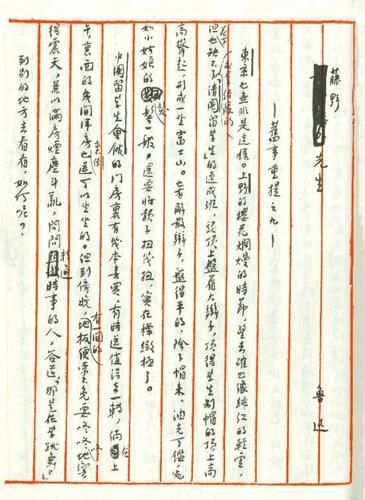 藤野先生
—舊事重提之九—
魯迅
東京也無非是這樣。上野的櫻花爛熳的時節,望去確也像緋紅的輕雲,
但花下也缺不了成羣結隊的「清國留學生」的速成班,頭頂上盤着大辮子,頂得學生制帽的頂上高
高聳起,形成一座富士山。也有解散辮子,盤得平的,除下帽來,油光可鑑,宛
如小姑娘的髮髻一般,還要將脖子扭幾扭,實在標緻極了。
中國留學生會館的門房裏有幾本書買,有時還值得去一轉;倘在上
午,裏面的幾間洋房裏倒也還可以坐坐的。但到傍晚,有一間的地板便常不免要咚咚地響
得震天,兼以滿房煙塵斗亂;問問精通時事的人,答道,「那是在學跳舞。」
到別的地方去看看,如何呢?